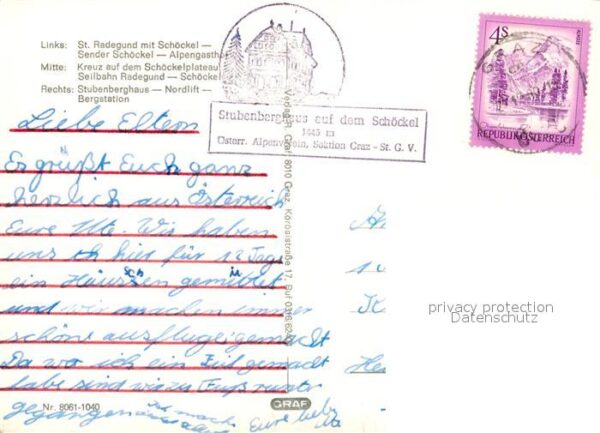 Links: St. Radegund mit Schöckel —
Sender Schöckel — Alpengasthof
Mitte: Kreuz auf dem Schöckelplateau
Seilbahn Radegund — Schöckel
Rechts: Stubenberghaus — Nordlift —
Bergstation
Stubenberghaus auf dem Schöckel
1445 m
Österr. Alpenverein, Sektion Graz - St. G. V.
4S
ALMSEE
REPUBLIK ÖSTERREICH
GRAZ
Liebe Eltern
Es grüßt Euch ganz
herzlich aus Österreich
Eure Ute. Wir haben
uns hier für 12 Tage
ein Häuschen gemietet
und wir machen immer
schöne ausflüge gemacht
Da wo ich ein gemacht
habe sind wir zu Fuß
gegangen
Eure liebe
Ute
Verlag R. Graf, 8010 Graz, Körösistraße 17, Ruf 0316/62
Nr. 8061-1040
GRAF
privacy protection
Datenschutz